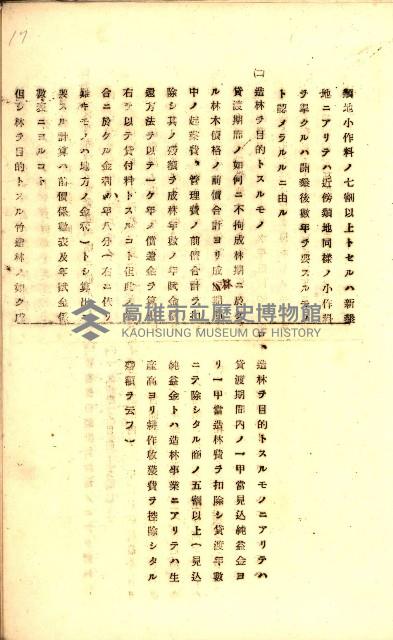 17
類地小作料ノ七割以上トセルハ新墾
地ニアリテハ近傍類地同樣ノ小作料
ヲ擧クルハ開墾後數年ヲ要スルモノ
ト認メラルルニ由ル
(二)造林ヲ目的トスルモノ
貸渡期節ノ如何ニ不拘成林期ニ於ケ
ル林木價格ノ前價合計ヨリ成林期間
中ノ起業費、管理費ノ前價合計ヲ扣
除シ其ノ殘額ヲ成林年數ノ年賦金償
還方法ヲ以テ一ケ年ノ償還金ヲ算出
右ヲ以テ貸付料トスルコト但此ノ場
合ニ於ケル金利ハ年八分(右ニ依リ
難キモノハ地方ノ金利)トシ算出ニ
要スル計算ハ前價係數表及年賦金係
數表ニヨルコト
但シ林ヲ目的トスル竹造林ノ如ク成
造林ヲ目的トスルモノニアリテハ
貸渡期間内ノ一甲當見込純益金ヨ
リ一甲當造林費ヲ扣除シ貸渡年數
ニテ除シタル商ノ五割以上(見込
純益金トハ造林事業ニアリテハ生
產高ヨリ耕作收穫費ヲ控除シタル
殘額ヲ云フ)
林
高雄市立歷史博物館
KAOHSIUNG MUSEUM OF HISTORY